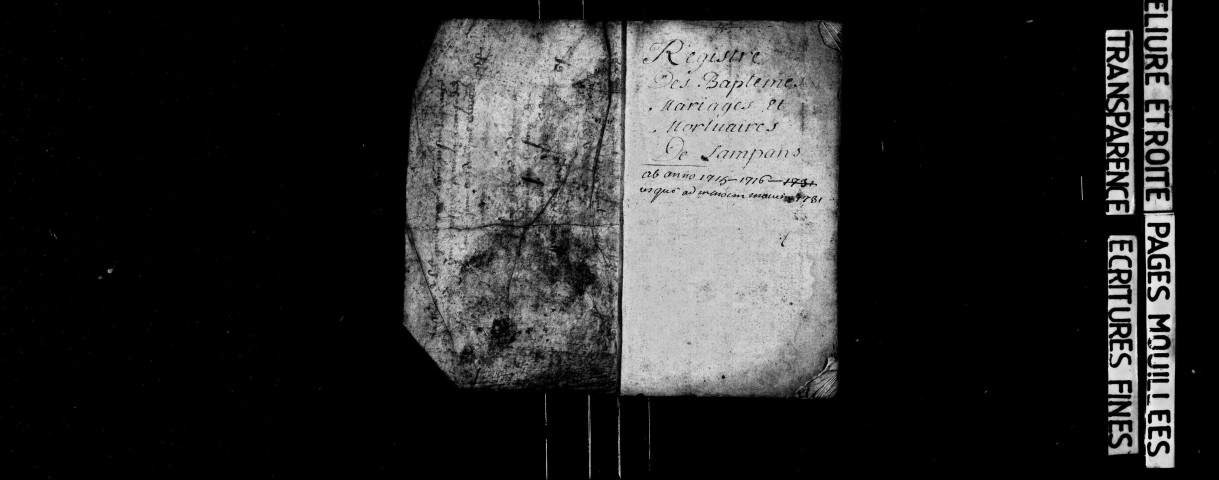 Registre
Des Baptemes
Mariages Et
Mortuaires
De Sampans
ab anno 1715–1716– 1731.
usque ad mensem 1731
ELIURE ETROITE PAGES MOUILLEES
TRANSPARENCE ECRITURES FINES